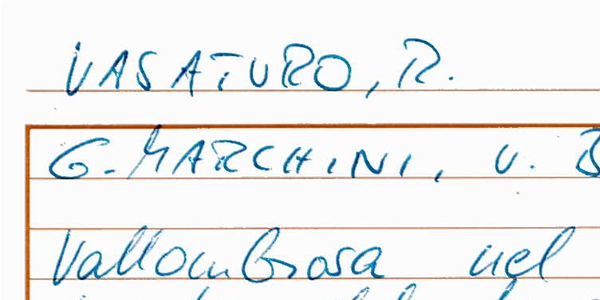 VASATURO, R.
G. MARCHINI, v. B
Vallombrosa nel